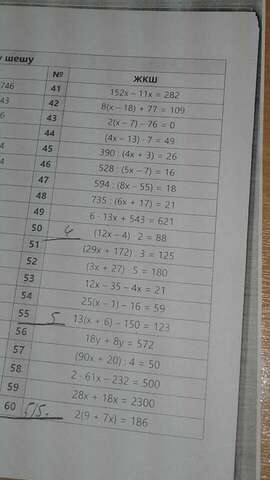 у шешу
№ ЖКШ
746 41 152x – 11x = 282
43 42 8(x – 18) + 77 = 109
6 43 2(x – 7) – 76 = 0
44 (4x – 13) · 7 = 49
4 45 390 : (4x + 3) = 26
4 46 528 : (5x – 7) = 16
47 594 : (8x – 55) = 18
48 735 : (6x + 17) = 21
49 6 · 13x + 543 = 621
50 (12x – 4) · 2 = 88
51 (29x + 172) : 3 = 125
52 (3x + 27) · 5 = 180
53 12x – 35 – 4x = 21
54 25(x – 1) – 16 = 59
55 5 13(x + 6) – 150 = 123
56 18y + 8y = 572
57 (90x + 20) : 4 = 50
58 2 · 61x – 232 = 500
59 28x + 18x = 2300
60 2(9 + 7x) = 186